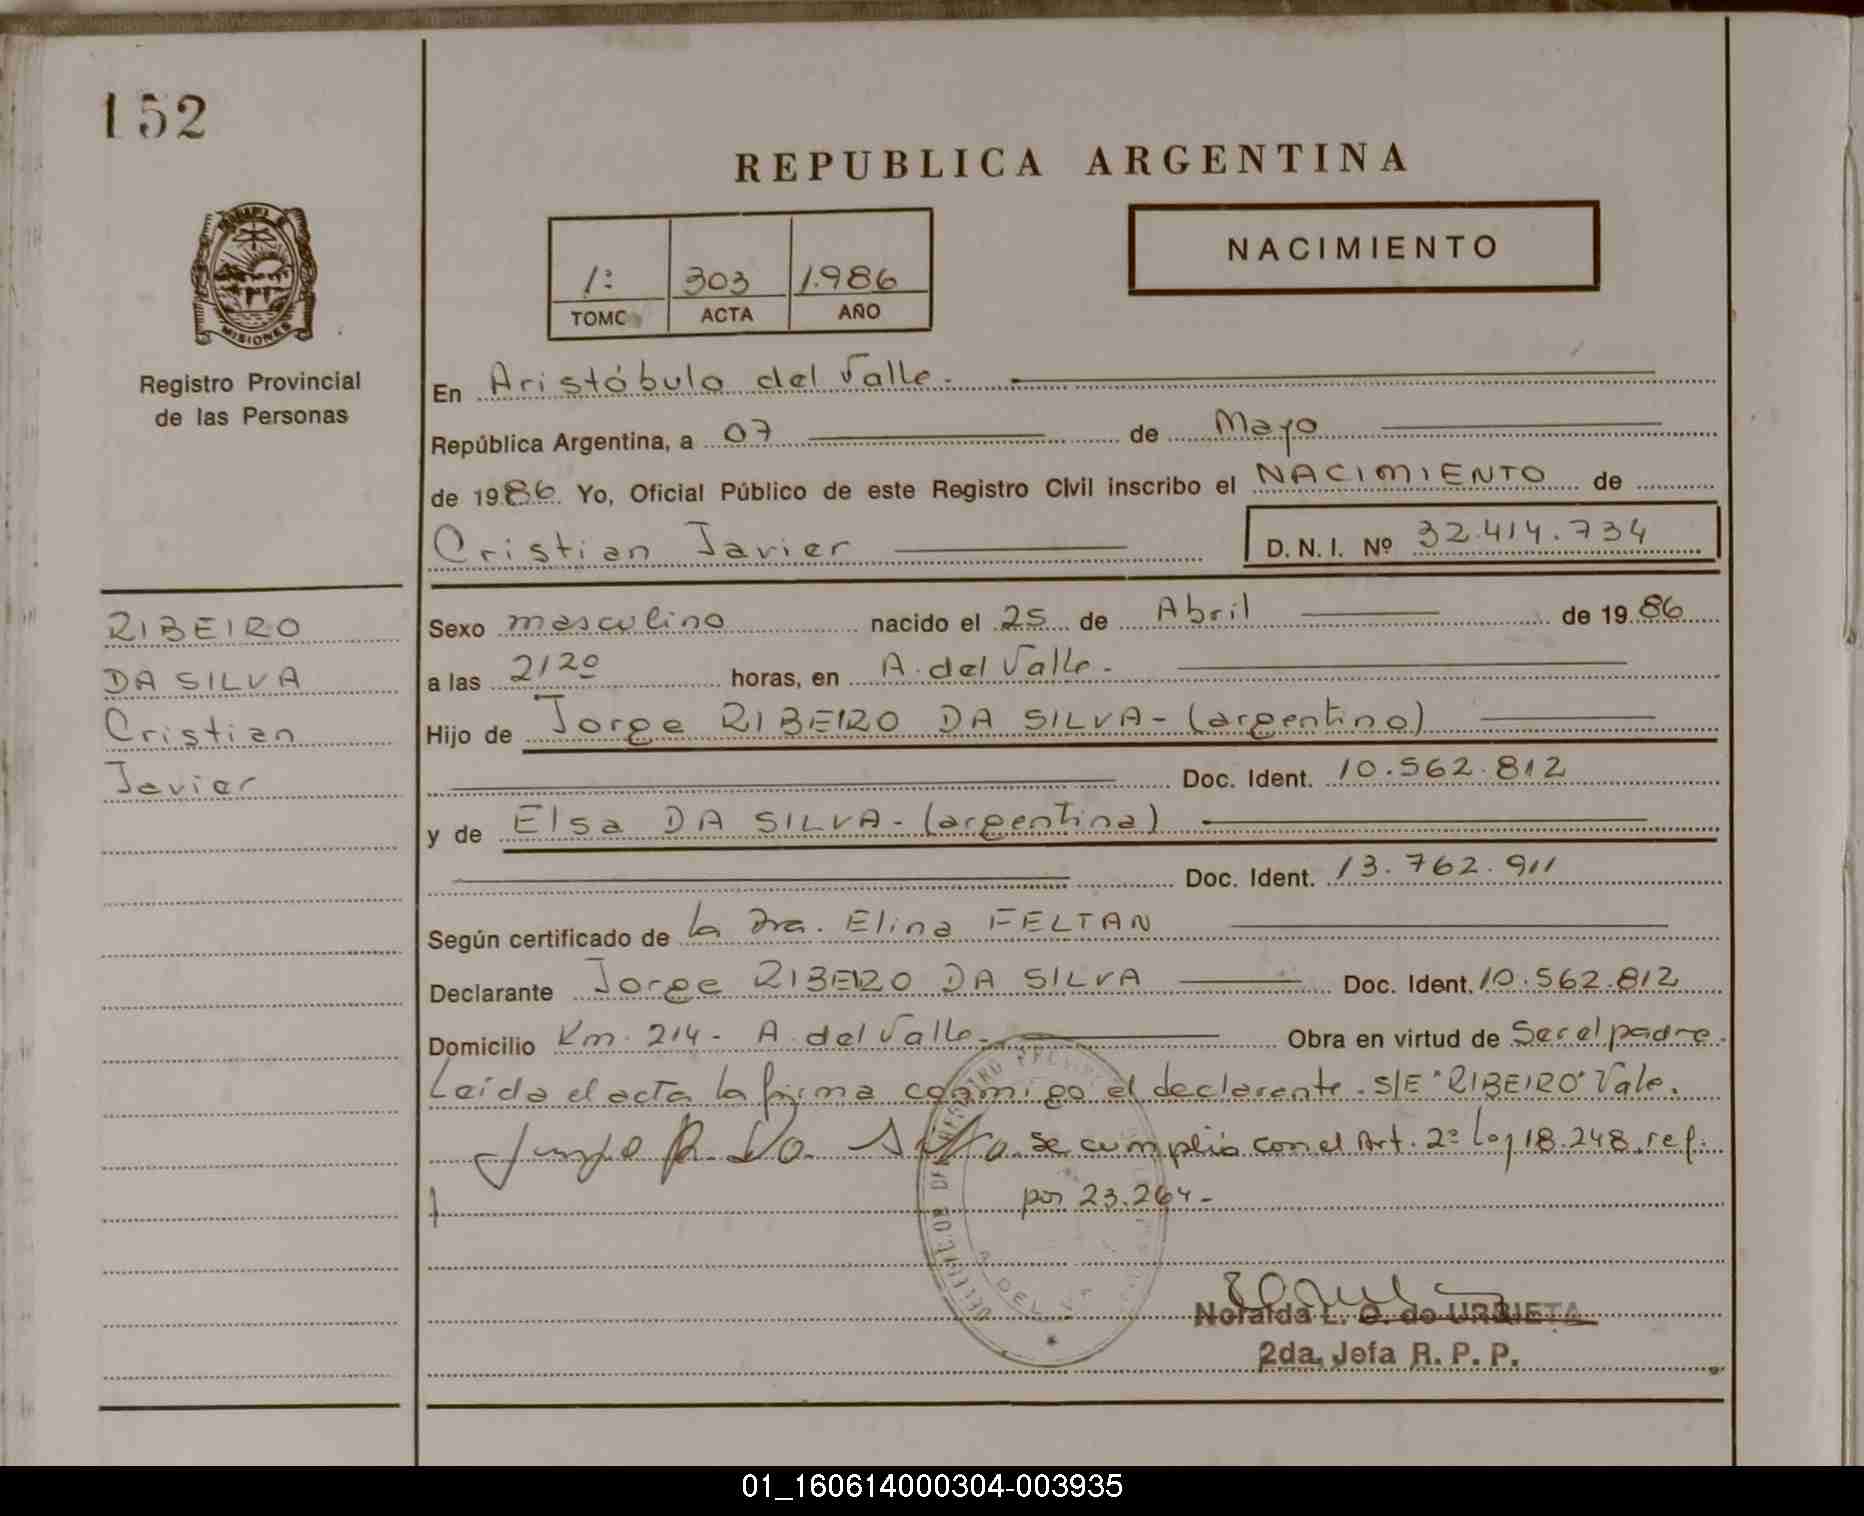 152
REPUBLICA ARGENTINA
NACIMIENTO
1º 303 1.986
TOMO ACTA AÑO
MISIONES
Registro Provincial
de las Personas
En Aristóbulo del Valle.
República Argentina, a 07 de Mayo
de 1986. Yo, Oficial Público de este Registro Civil inscribo el NACIMIENTO de
Cristian Javier D.N.I. Nº 32.414.734
RIBEIRO
DA SILVA
Cristian
Javier
Sexo masculino nacido el 25 de Abril de 1986
a las 21 20 horas, en A. del Valle.
Hijo de Jorge RIBEIRO DA SILVA - (argentino)
Doc. Ident. 10.562.812
y de Elsa DA SILVA - (argentina)
Doc. Ident. 13.762.911
Según certificado de la Dra. Elina FELTAN
Declarante Jorge RIBEIRO DA SILVA Doc. Ident. 10.562.812
Domicilio Km. 214 - A. del Valle. Obra en virtud de Ser el padre.
Leída el acta la firma conmigo el declarante. S/E "RIBEIRO" Vale.
Jorge R. Da Silva se cumplió con el Art. 2º Ley 18.248. ref.
por 23.264 -
Noralda L. O. de URBIETA
2da. Jefa R. P. P.
01_160614000304-003935